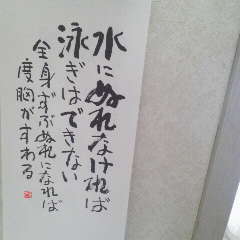 水にぬれなければ
泳ぎはできない
全身ずぶぬれになれば
度胸がすわる